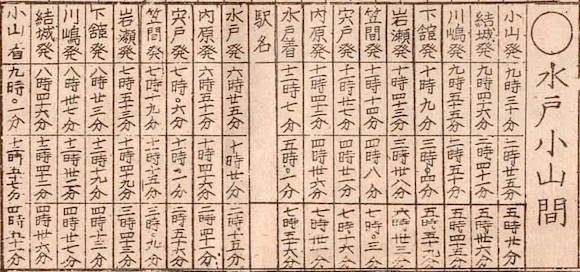 ○水戸小山間
小山発 九時三十分 二時廿五分 五時廿分
結城発 九時四六分 二時四十一分
川嶋発 九時五十五分 二時五十分
下舘発 十時九分 三時〇四分 五時五十九分
岩瀬発 十時四三分 三時廿八分 六時廿三分
笠間発 十一時十四分 四時八分 七時〇三分
宍戸発 十一時廿二分 四時十六分 七時十一分
内原発 十一時卅七分 四時卅一分 七時廿六分
水戸着 十二時七分 五時〇一分 七時五十六分
駅名
水戸発 六時廿五分 十時廿分 二時十五分
内原発 六時五十分 十時四十六分 二時四十分
宍戸発 七時〇六分 二時五十分
笠間発 七時十九分 十一時十五分 三時〇九分
岩瀬発 七時五十三分 十一時四九分 三時四三分
下舘発 八時廿三分 十二時十九分 四時十三分
川嶋発 八時卅七分 十二時卅三分 四時廿七分
結城発 八時四六分 十二時四二分 四時卅六分
小山着 九時〇一分 十二時五七分 四時五十一分